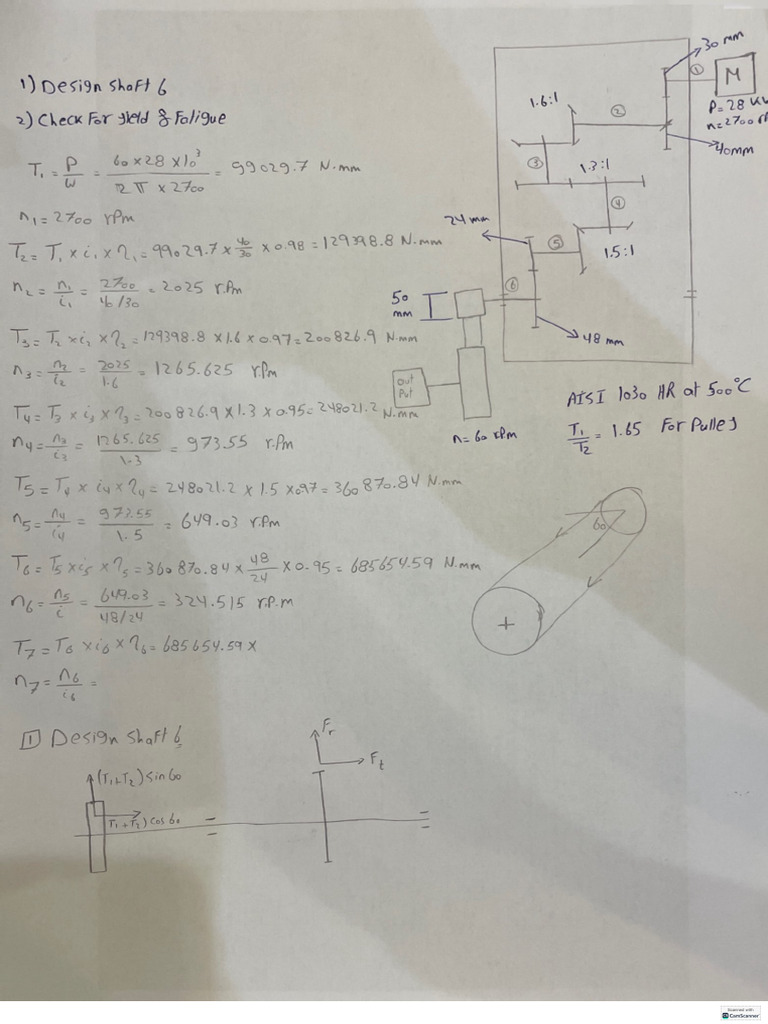 1) Design Shaft 6
2) Check For yield & Fatigue
T₁ = P/W = 60 × 28 × 10³ / 2π × 2700 = 99029.7 N.mm
n₁ = 2700 rpm
T₂ = T₁ × i₁ × η₁ = 99029.7 × 40/30 × 0.98 = 129398.8 N.mm
n₂ = n₁/i₁ = 2700 / 40/30 = 2025 r.pm
T₃ = T₂ × i₂ × η₂ = 129398.8 × 1.6 × 0.97 = 200826.9 N.mm
n₃ = n₂/i₂ = 2025/1.6 = 1265.625 rpm
T₄ = T₃ × i₃ × η₃ = 200826.9 × 1.3 × 0.95 = 248021.2 N.mm
n₄ = n₃/i₃ = 1265.625/1.3 = 973.55 r.pm
T₅ = T₄ × i₄ × η₄ = 248021.2 × 1.5 × 0.97 = 360870.84 N.mm
n₅ = n₄/i₄ = 973.55/1.5 = 649.03 r.pm
T₆ = T₅ × i₅ × η₅ = 360870.84 × 48/24 × 0.95 = 685654.59 N.mm
n₆ = n₅/i = 649.03 / 48/24 = 324.515 r.p.m
T₇ = T₆ × i₆ × η₆ = 685654.59 ×
n₇ = n₆/i₆ =
1 Design Shaft 6
(T₁+T₂) sin 60
T₁+T₂) cos 60
Fr
Ft
30 mm
1
M
P = 28 KW
n = 2700 r
40mm
1.6:1
2
3
1.3:1
4
24 mm
5
1.5:1
6
50
mm
48 mm
out
Put
n = 60 rpm
AISI 1030 HR at 500°C
T₁/T₂ = 1.65 For Pulley
60
Scanned with
CamScanner